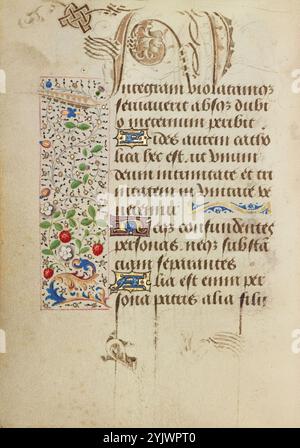 integram violatamqz
seruauerit absqz dubi
o ineternum peribit
Fides autem catho
lica hec est. ut vnum
deum in trinitate et tri
nitatem in vnitate ve
neremur
Neqz confundentes
personas. neqz substa
ciam separantes
Alia est enim per
sona patris alia filij
alamy
Image ID: 2YJWPT0
www.alamy.com